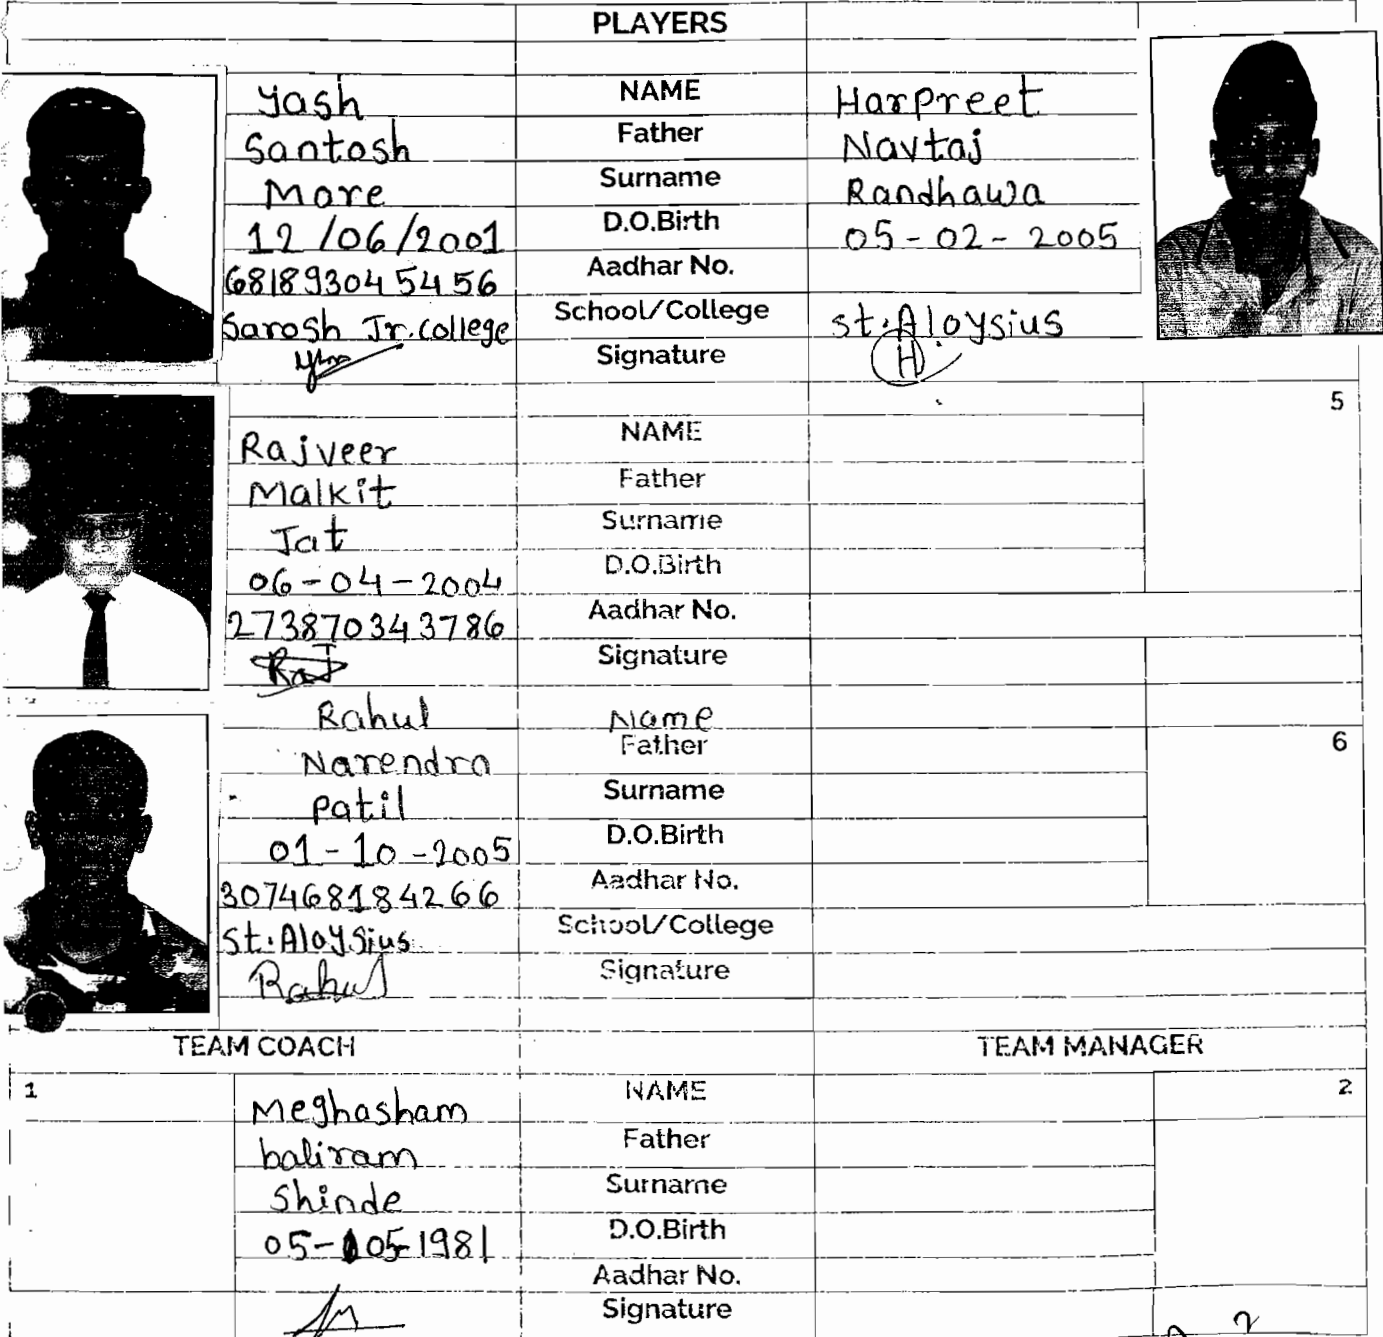 PLAYERS
Yash NAME Harpreet
Santosh Father Navtaj
More Surname Randhawa
12/06/2001 D.O.Birth 05-02-2005
681893045456 Aadhar No.
Sarosh Jr.College School/College st.Aloysius
Signature H
5
Rajveer NAME
Malkit Father
Jat Surname
06-04-2004 D.O.Birth
273870343786 Aadhar No.
Raj Signature
Rahul Name
Narendra Father 6
Patil Surname
01-10-2005 D.O.Birth
307468184266 Aadhar No.
St.Aloysius School/College
Rahul Signature
TEAM COACH TEAM MANAGER
1 Meghasham NAME 2
baliram Father
Shinde Surname
05-05-1981 D.O.Birth
Aadhar No.
Signature